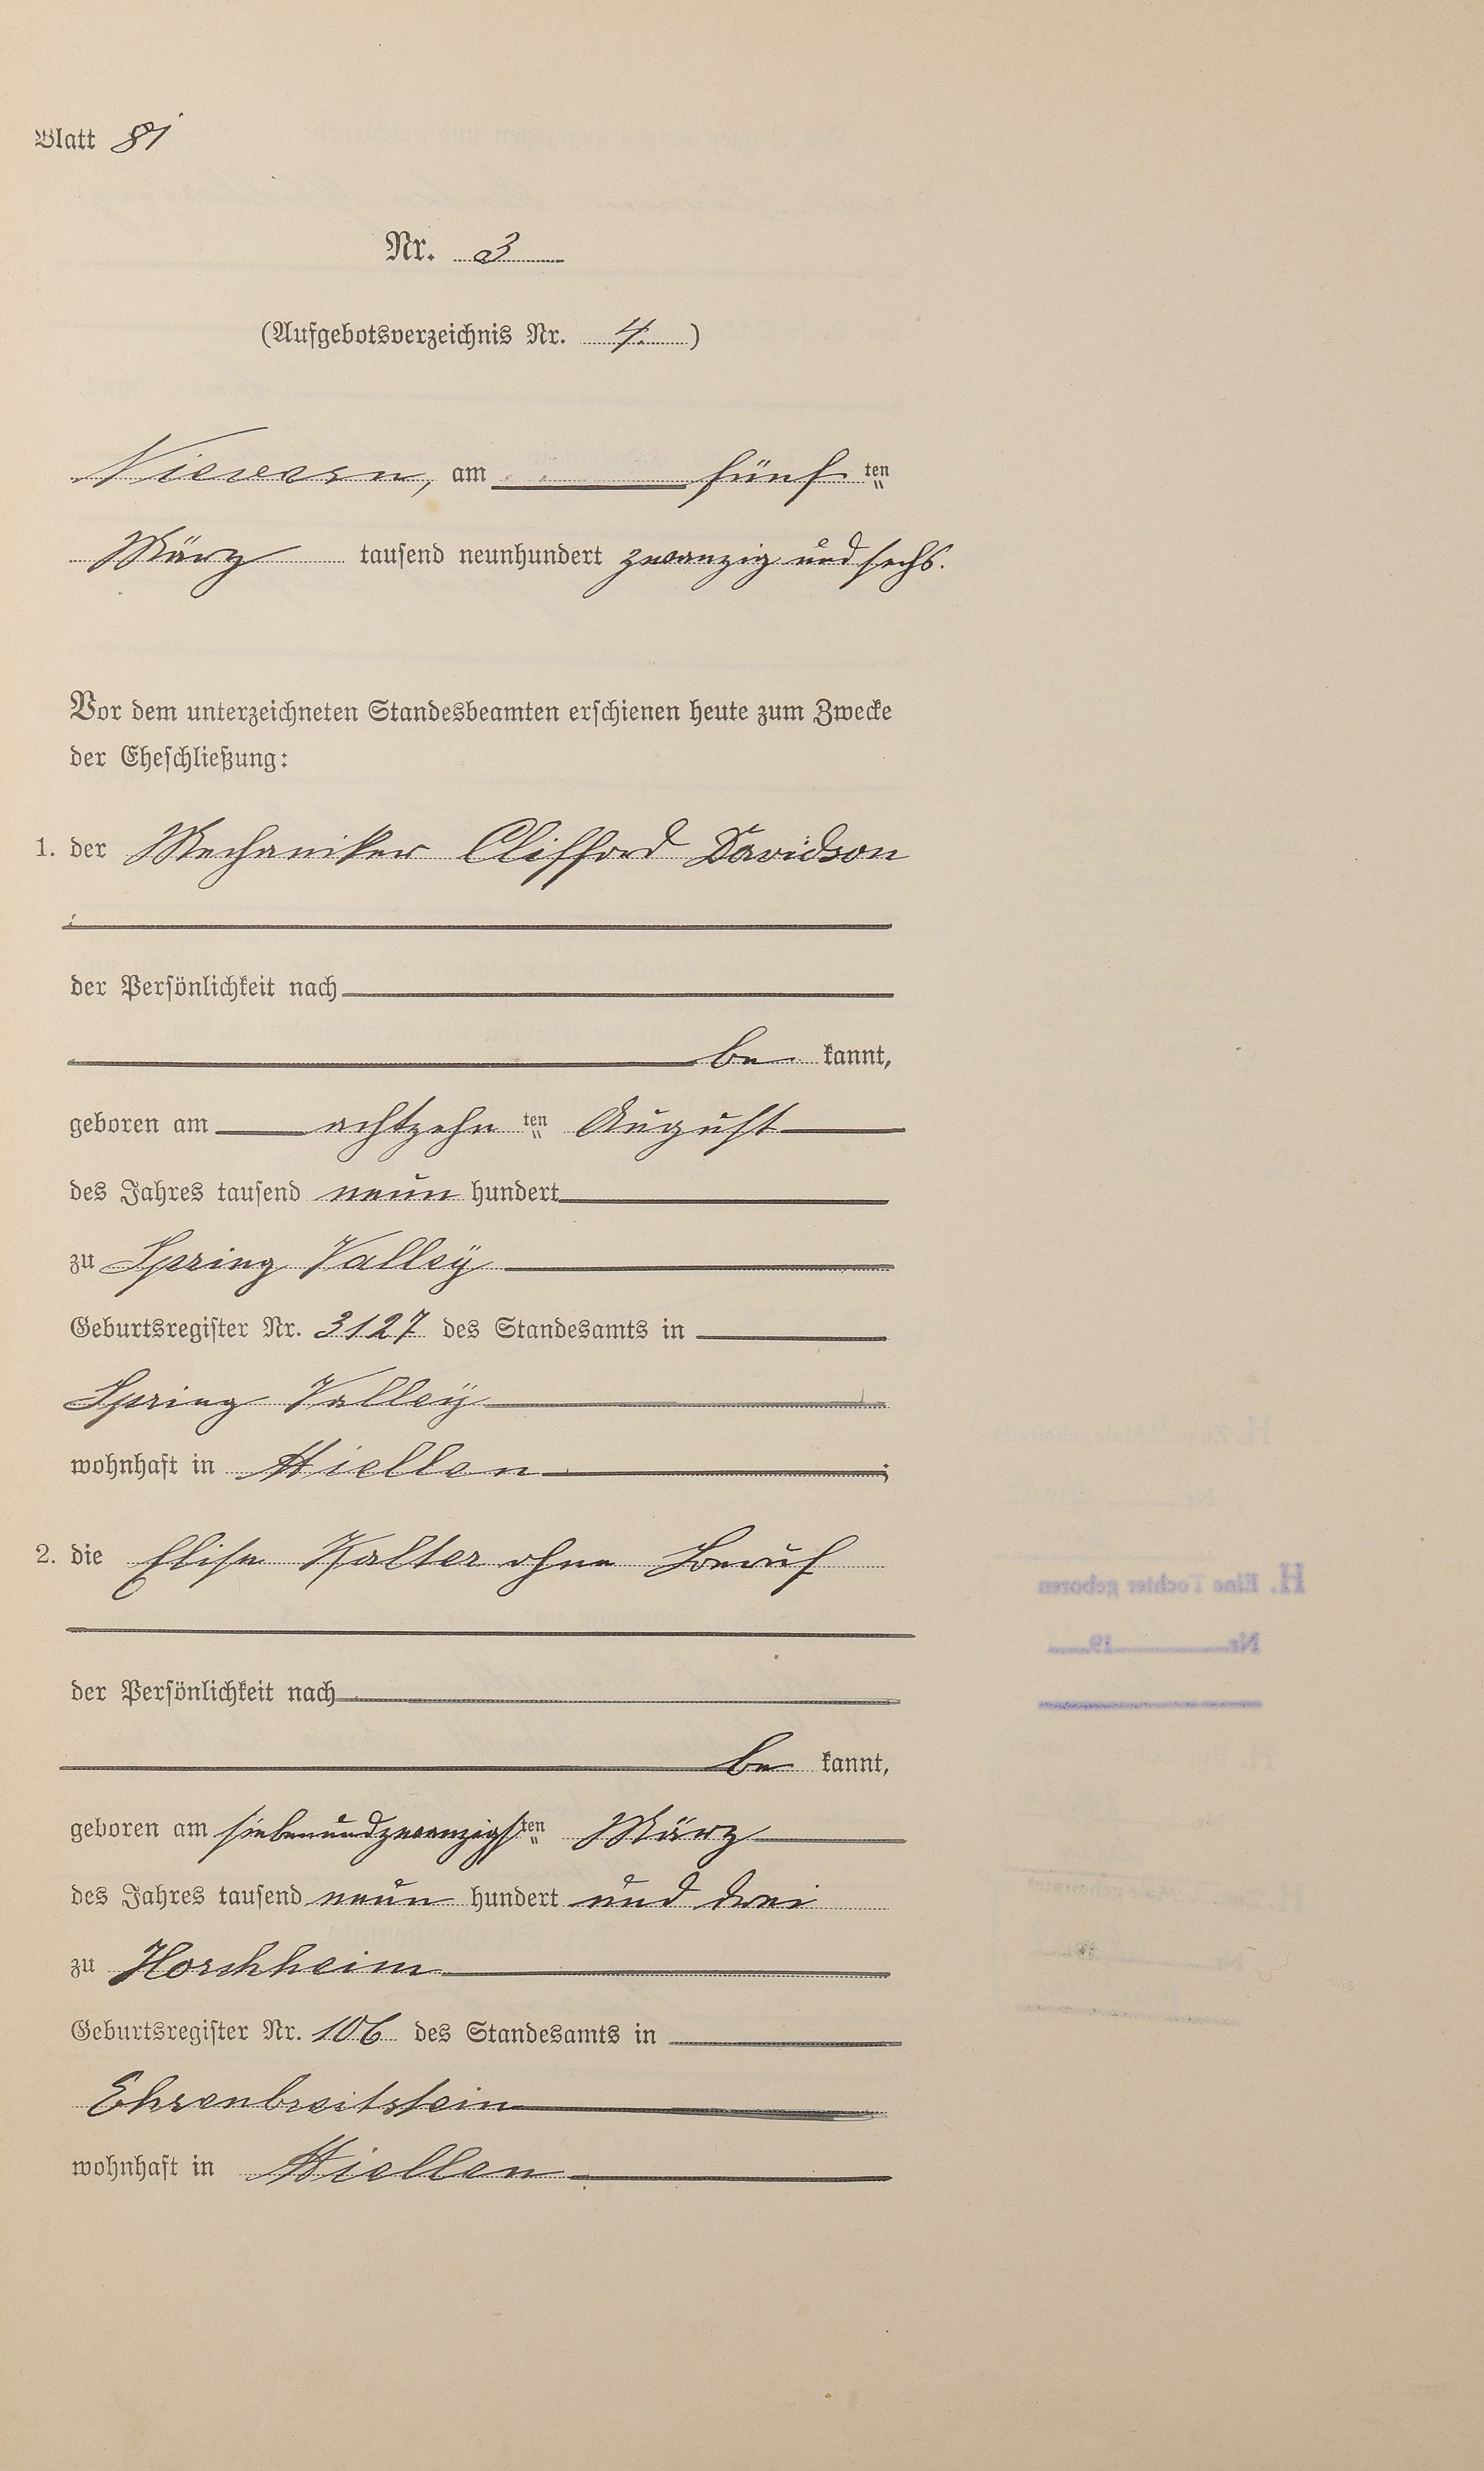 Blatt 81
Nr. 3
(Aufgebotsverzeichnis Nr. 4.)
Nievern, am fünf ten
März tausend neunhundert zwanzig und sechs.
Vor dem unterzeichneten Standesbeamten erschienen heute zum Zwecke
der Eheschließung:
1. der Mechaniker Clifford Davidson
der Persönlichkeit nach
be kannt,
geboren am achtzehn ten August
des Jahres tausend neun hundert
zu Spring Valley
Geburtsregister Nr. 3127 des Standesamts in
Spring Valley
wohnhaft in Miellen;
2. die Elise Kalter ohne Beruf
der Persönlichkeit nach
be kannt,
geboren am siebenundzwanzigsten März
des Jahres tausend neun hundert und drei
zu Horchheim
Geburtsregister Nr. 106 des Standesamts in
Ehrenbreitstein
wohnhaft in Miellen
H. Eine Tochter geboren
Nr. 19